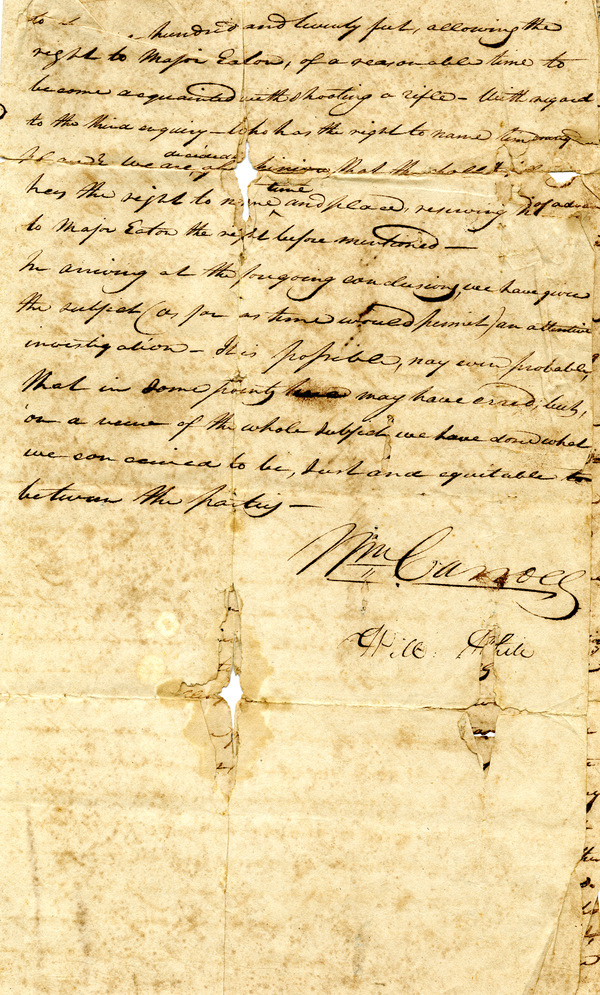 to hundred and twenty feet, allowing the
right to Major Eaton, of a reasonable time to
become acquainted with shooting a rifle – With regard
to the third enquiry – Who has the right to name time
decidedly
We are of opinion, that the
time
has the right to name and place, reserving
to Major Eaton the right before mentioned –
In arriving at the foregoing conclusions, we have given
the subject (as far as time would permit) an attentive
investigation – It is possible, nay even probable,
that in some points may have erred; but,
on a view of the whole subject we have done what
we conceived to be, Just and equitable to
between the parties –
Wm Carroll
Will: White